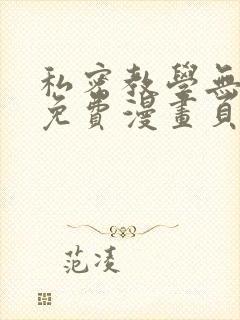 私密教學無
免費漫畫頁
范凌